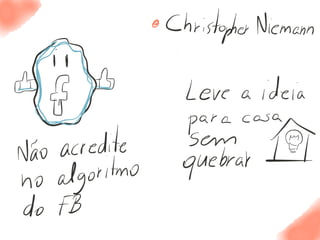 Christopher Niemann
f
Não acredite
no algoritmo
do FB
Leve a ideia
para casa
sem
quebrar